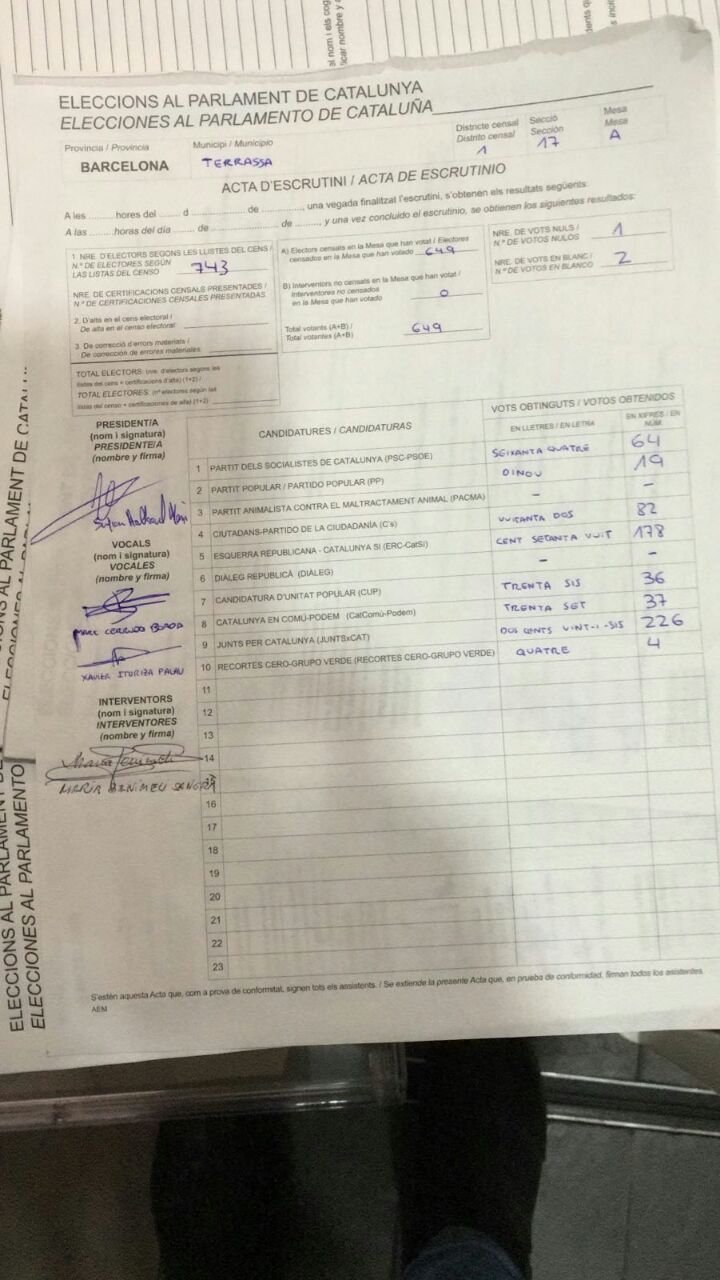 ELECCIONS AL PARLAMENT DE CATALUNYA
ELECCIONES AL PARLAMENTO DE CATALUÑA
Província / Provincia
BARCELONA
Municipi / Municipio
TERRASSA
Districte censal
Distrito censal
1
Secció
Sección
17
Mesa
Mesa
A
ACTA D'ESCRUTINI / ACTA DE ESCRUTINIO
A les .........hores del ...... d ..................... de ............., una vegada finalitzat l'escrutini, s'obtenen els resultats següents:
A las .........horas del día ...... de ..................... de ........, y una vez concluido el escrutinio, se obtienen los siguientes resultados:
1. NRE. D'ELECTORS SEGONS LES LLISTES DEL CENS /
N.º DE ELECTORES SEGÚN
LAS LISTAS DEL CENSO
743
NRE. DE CERTIFICACIONS CENSALS PRESENTADES /
N.º DE CERTIFICACIONES CENSALES PRESENTADAS
2. D'alta en el cens electoral /
De alta en el censo electoral:
3. De correcció d'errors materials /
De corrección de errores materiales:
TOTAL ELECTORS: (nre. d'electors segons les
llistes del cens + certificacions d'alta) (1+2) /
TOTAL ELECTORES: (nº electores según las
listas del censo + certificaciones de alta) (1+2)
A) Electors censats en la Mesa que han votat / Electores
censados en la Mesa que han votado 649
B) Interventors no censats en la Mesa que han votat /
Interventores no censados
en la Mesa que han votado
0
Total votants (A+B) /
Total votantes (A+B)
649
NRE. DE VOTS NULS /
N.º DE VOTOS NULOS
1
NRE. DE VOTS EN BLANC /
N.º DE VOTOS EN BLANCO
2
PRESIDENT/A
(nom i signatura)
PRESIDENTE/A
(nombre y firma)
VOCALS
(nom i signatura)
VOCALES
(nombre y firma)
XAVIER ITURIZA PALAU
INTERVENTORS
(nom i signatura)
INTERVENTORES
(nombre y firma)
CANDIDATURES / CANDIDATURAS
VOTS OBTINGUTS / VOTOS OBTENIDOS
EN LLETRES / EN LETRA
EN XIFRES / EN NÚM.
1 PARTIT DELS SOCIALISTES DE CATALUNYA (PSC-PSOE) SEIXANTA QUATRE 64
2 PARTIT POPULAR / PARTIDO POPULAR (PP) DINOU 19
3 PARTIT ANIMALISTA CONTRA EL MALTRACTAMENT ANIMAL (PACMA) - -
4 CIUTADANS-PARTIDO DE LA CIUDADANÍA (C's) VUITANTA DOS 82
5 ESQUERRA REPUBLICANA - CATALUNYA SÍ (ERC-CatSí) CENT SETANTA VUIT 178
6 DIÀLEG REPUBLICÀ (DIÀLEG) - -
7 CANDIDATURA D'UNITAT POPULAR (CUP) TRENTA SIS 36
8 CATALUNYA EN COMÚ-PODEM (CatComú-Podem) TRENTA SET 37
9 JUNTS PER CATALUNYA (JUNTSxCAT) DOS CENTS VINT-I-SIS 226
10 RECORTES CERO-GRUPO VERDE (RECORTES CERO-GRUPO VERDE) QUATRE 4
11
12
13
14
15
16
17
18
19
20
21
22
23
S'estén aquesta Acta que, com a prova de conformitat, signen tots els assistents. / Se extiende la presente Acta que, en prueba de conformidad, firman todos los asistentes.
AEM
ELECCIONS AL PARLAMENT DE
ELECCIONES AL PARLAMENTO